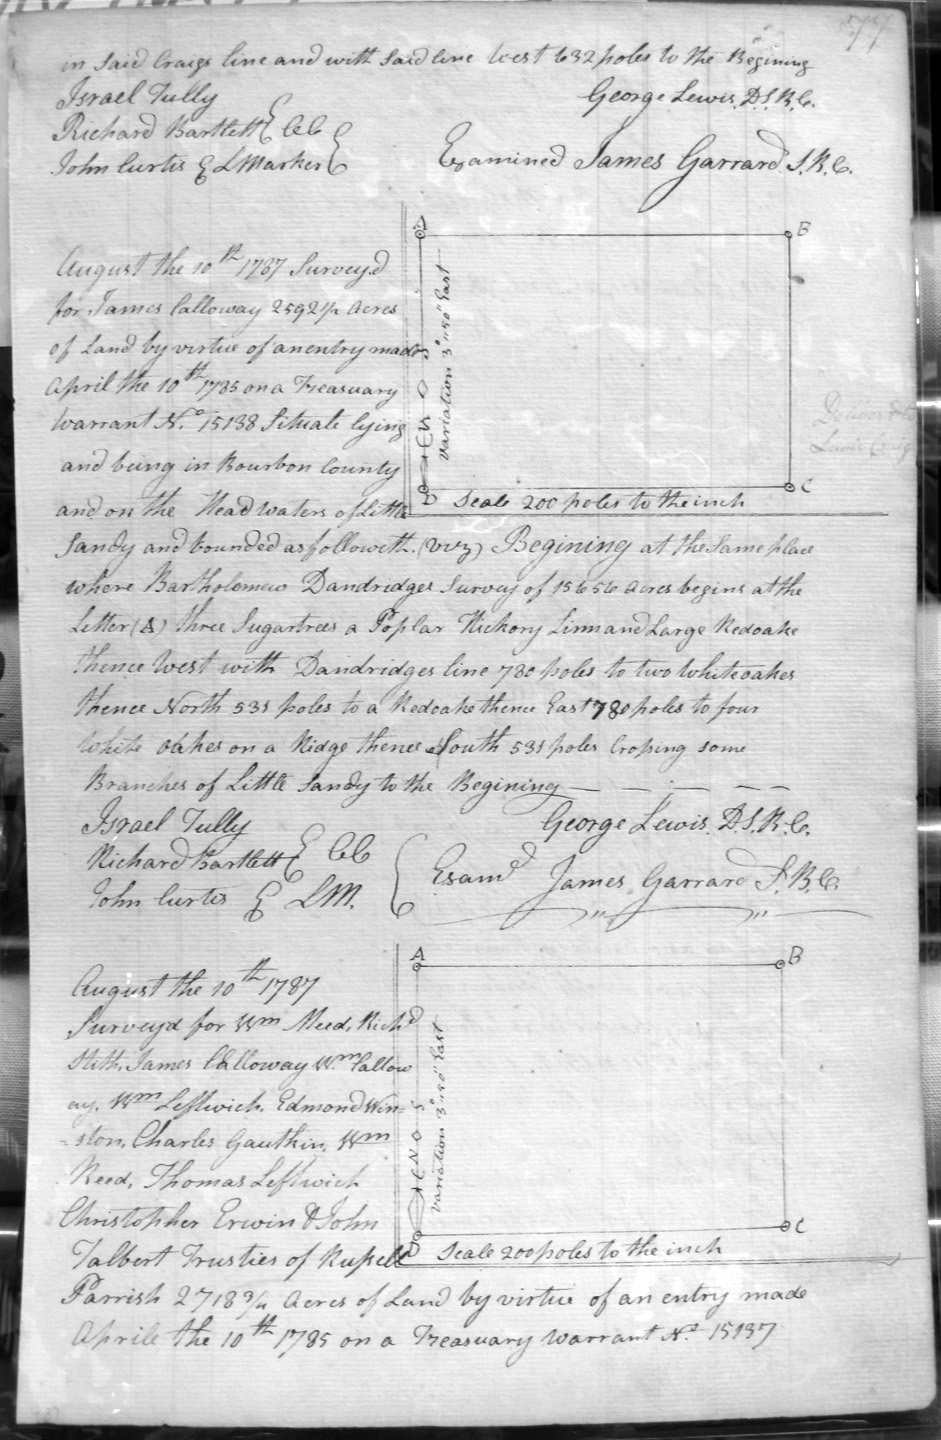 577
in said Craigs line and with said line West 632 poles to the Begining
Israel Tully
George Lewis. D.S.B.C.
Richard Bartlett } CCC
John Curtis } LMarker
Examined James Garrard S.B.C.
A
B
August the 10th 1787 Survey,d
for James Calloway 2592 1/2 Acres
of Land by virtue of an entry made
April the 10th 1785 on a Treasuary
Warrant No. 15138 Situate lying
and being in Bourbon County
and on the Head waters of Little
Variation 3°"50' East
D
C
Scale 200 poles to the inch
Sandy and bounded as followith. (viz) Begining at the Same place
where Bartholomew Dandridges Survey of 15656 Acres begins at the
Letter (A) three Sugartrees a Poplar Hickory Linn and Large Redoake
thence West with Dandridges line 780 poles to two Whiteoakes
thence North 531 poles to a Redoake thence East 780 poles to four
White Oakes on a Ridge thence South 531 poles Crosing some
Branches of Little Sandy to the Begining
Israel Tully
George Lewis. D.S.B.C.
Richard Bartlett } CCC
John Curtis } LM.
Exam,d James Garrard S.B.C.
A
B
August the 10th 1787
Survey'd for Wm Meed, Rich,d
Stith, James Calloway Wm Callow
ay, Wm Leftwich. Edmond Win=
=ston, Charles Gautkin, Wm
Reed, Thomas Leftwich
Christopher Erwin & John
Talbert Trusties of Russell
Variation 3°"50' East
D
C
Scale 200 poles to the inch
Parrish 2718 3/4 Acres of Land by virtue of an entry made
Aprile the 10th 1785 on a Treasuary Warrant No. 15137